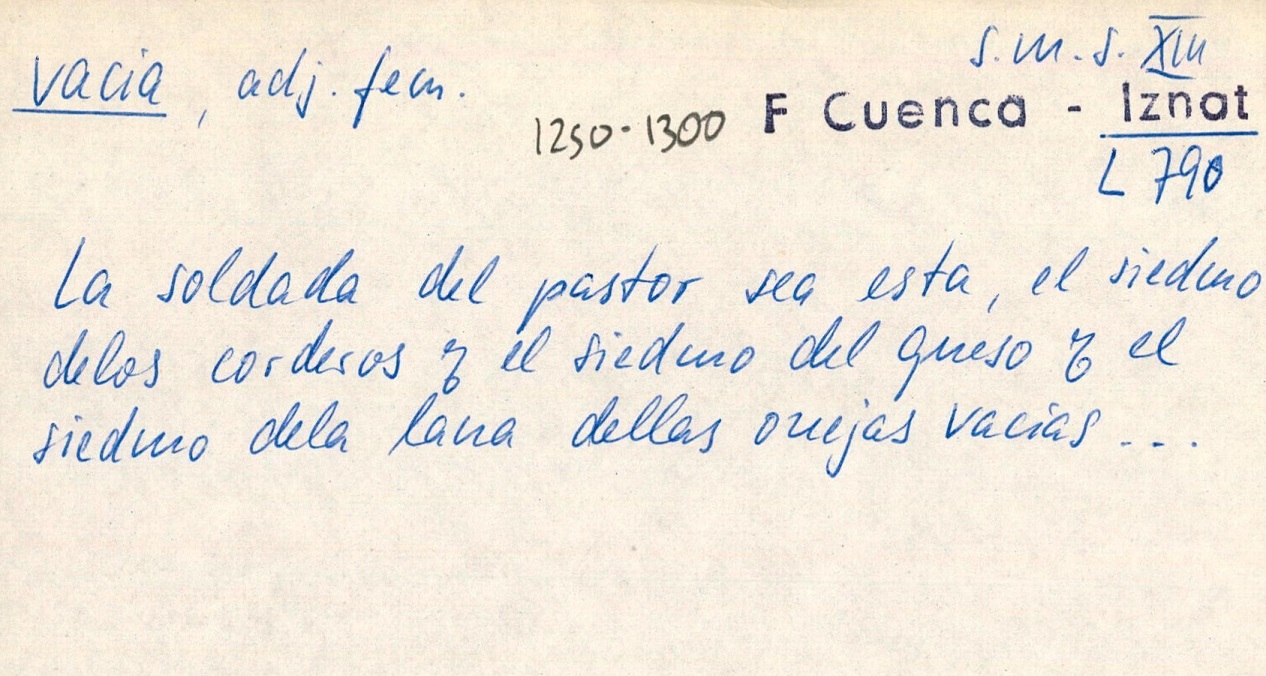 s.m.s. XIII
vacia, adj. fem.
1250-1300 F Cuenca - Iznat
L 790
La soldada del pastor sea esta, el siedmo
delos corderos ⁊ el siedmo del queso ⁊ el
siedmo dela lana dellas ouejas vacias ...